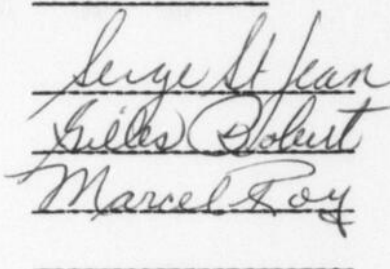 Serge St Jean
Gilles Robert
Marcel Roy